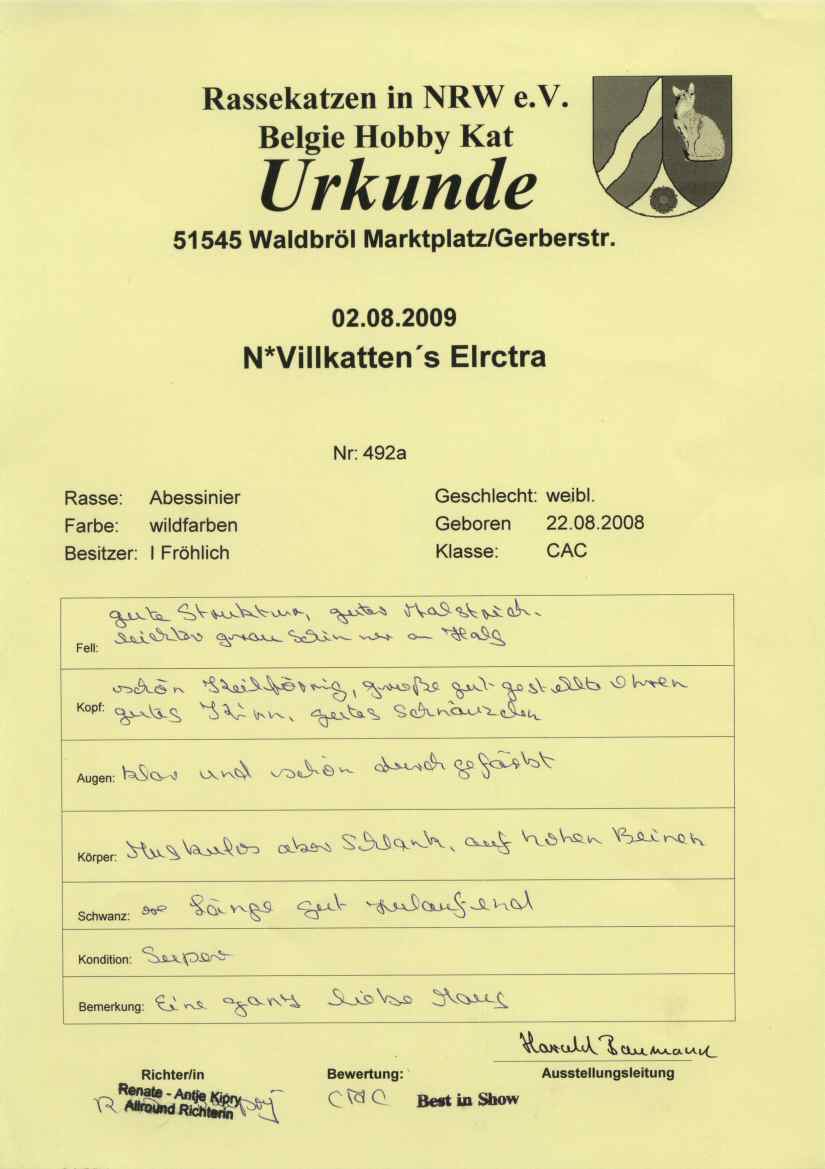 Rassekatzen in NRW e.V.
Belgie Hobby Kat
Urkunde
51545 Waldbröl Marktplatz/Gerberstr.
02.08.2009
N*Villkatten´s Elrctra
Nr: 492a
Rasse: Abessinier
Farbe: wildfarben
Besitzer: I Fröhlich
Geschlecht: weibl.
Geboren 22.08.2008
Klasse: CAC
gute Struktur, gutes
Fell: leichter grau am Hals
schön Keilförmig, große gut gestellte Ohren
Kopf: gutes Kinn, gutes Schnäuzchen
Augen: klar und schön durchgefärbt
Körper: Muskulös aber Schlank, auf hohen Beinen
Schwanz: Länge gut zulaufend
Kondition: Super
Bemerkung: Eine ganz liebe Maus
Harald Baumann
Ausstellungsleitung
Richter/in
Renate - Antje Kipry
Allround Richterin
Bewertung:
CAC Best in Show